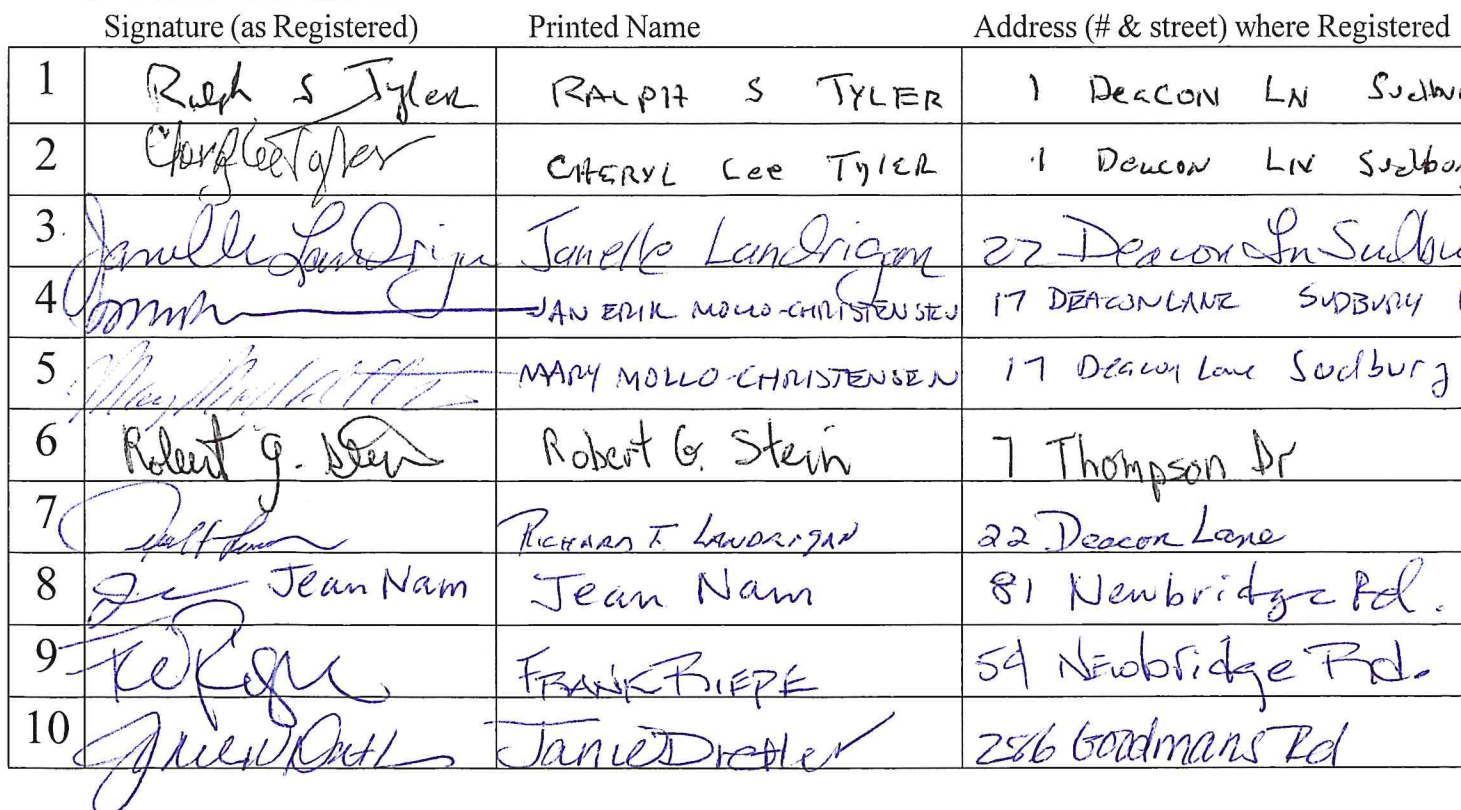 Signature (as Registered) Printed Name Address (# & street) where Registered
1 Ralph S Tyler RALPH S TYLER 1 DeaCON LN Sudbur
2 Cheryl Lee Tyler CHERYL Lee TYlER 1 Deacon LN Sudbury
3 Janelle Landrigan Janelle Landrigan 22 Deacon Ln Sudbu
4 JAN ERIK MOLLO-CHRISTENSEN 17 DEACON LANE SUDBURY
5 MARY MOLLO-CHRISTENSEN 17 Deacon Lane Sudbury
6 Robert G. Stein Robert G. Stein 7 Thompson Dr
7 RICHARD T. LANDRIGAN 22 Deacon Lane
8 Jean Nam Jean Nam 81 Newbridge Rd.
9 FRANK RIEPE 54 Newbridge Rd.
10 Janie Dretler 286 Goodmans Rd